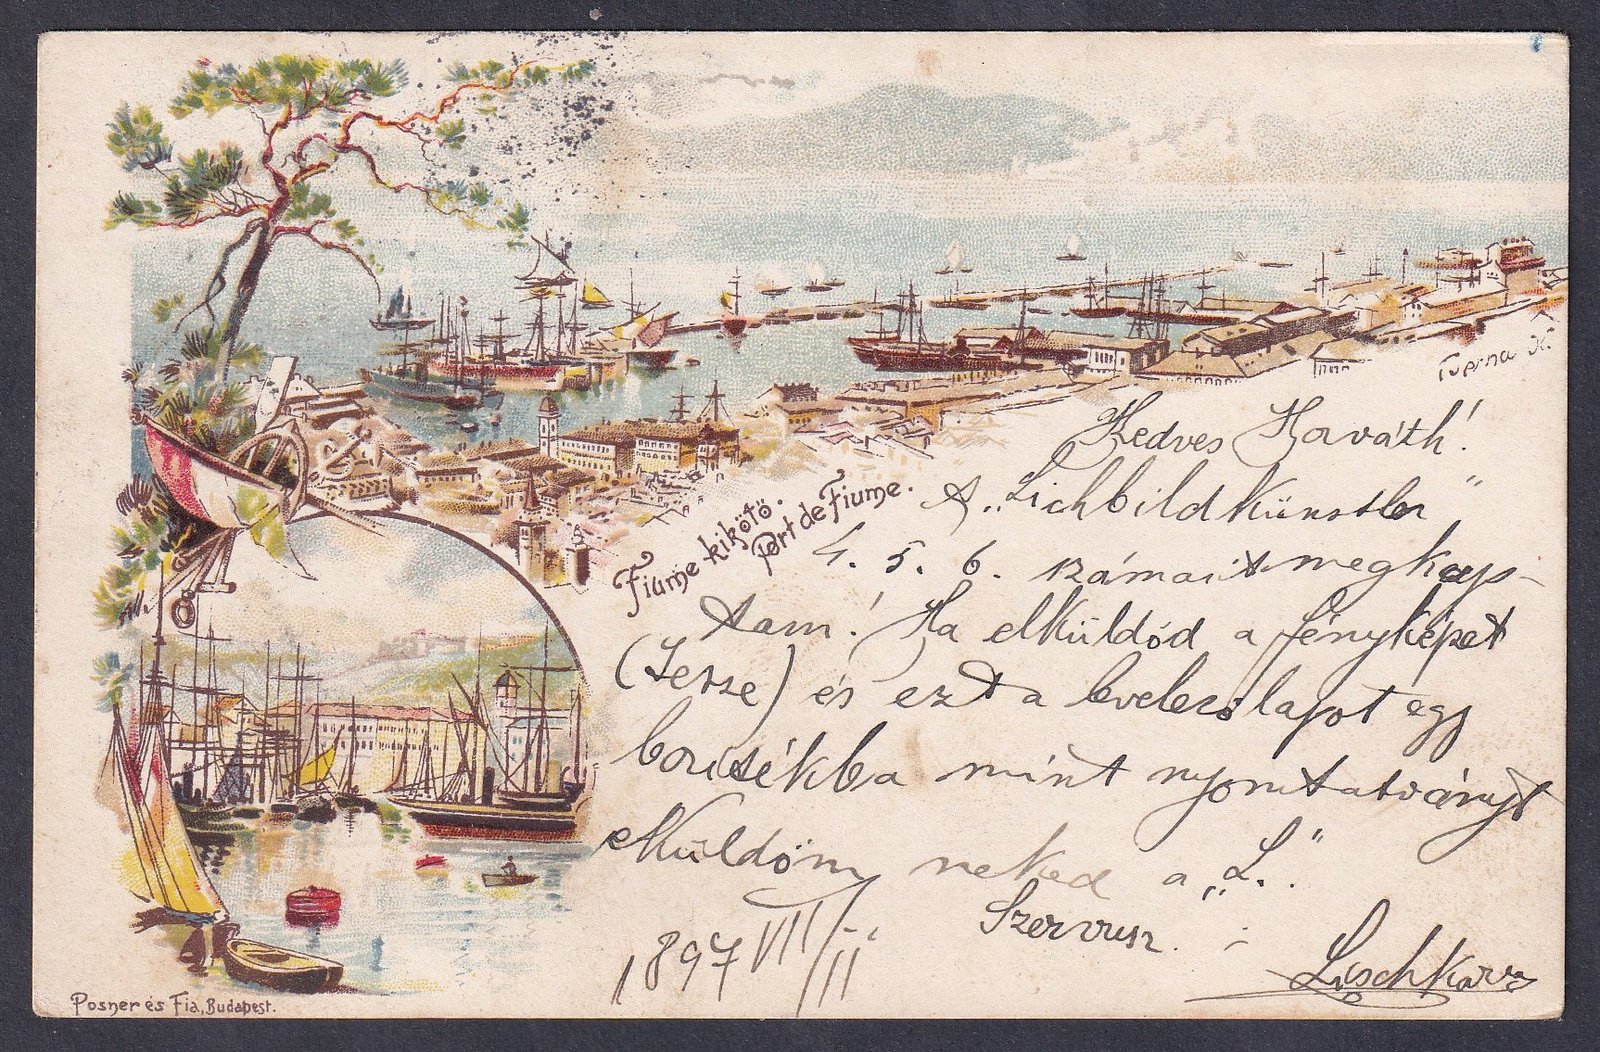 Turna K.
Fiume-kikötö.
Port de Fiume.
Kedves Horváth!
A „Lichbildkünstler"
4. 5. 6. számait megkap-
tam! Ha elküldöd a fényképet
és ezt a levelezőlapot egy
borítékba mint nyomtatványt
elküldöm neked a „L."
Szervusz.
1897 VII/11
Posner és Fia, Budapest.